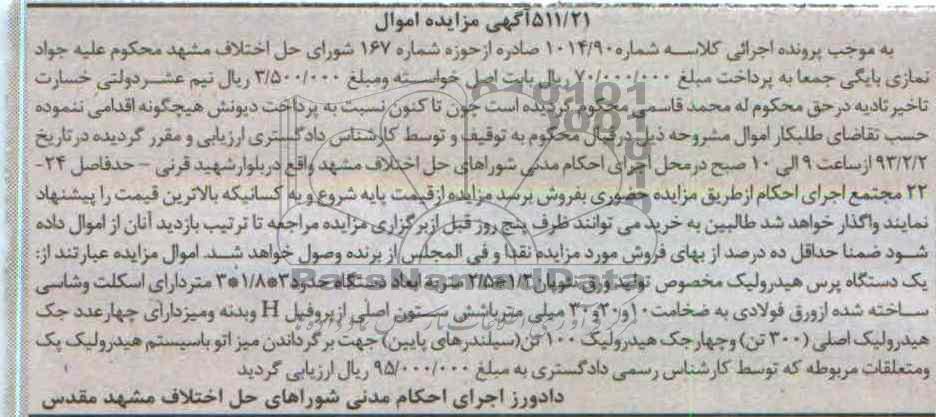 ۵۱۱/۲۱آگهی مزایده اموال
به موجب پرونده اجرائی کلاسه شماره۱۰۱۴/۹۰ صادره ازحوزه شماره ۱۶۷ شورای حل اختلاف مشهد محکوم علیه جواد
نمازی بایگی جمعا به پرداخت مبلغ ۷۰/۰۰۰/۰۰۰ ریال بابت اصل خواسته ومبلغ ۳/۵۰۰/۰۰۰ ریال نیم عشردولتی خسارت
تاخیر تادیه درحق محکوم له محمد قاسمی محکوم گردیده است چون تا کنون نسبت به پرداخت دیونش هیچگونه اقدامی ننموده
حسب تقاضای طلبکار اموال مشروحه ذیل درقبال محکوم به توقیف و توسط کارشناس دادگستری ارزیابی و مقرر گردیده درتاریخ
۹۳/۲/۲ ازساعت ۹ الی ۱۰ صبح درمحل اجرای احکام مدنی شوراهای حل اختلاف مشهد واقع دربلوارشهید قرنی – حدفاصل ۲۴-
۲۲ مجتمع اجرای احکام ازطریق مزایده حضوری بفروش برسد مزایده ازقیمت پایه شروع و به کسانیکه بالاترین قیمت را پیشنهاد
نمایند واگذار خواهد شد طالبین به خرید می توانند ظرف پنج روز قبل ازبرگزاری مزایده مراجعه تا ترتیب بازدید آنان از اموال داده
شود ضمنا حداقل ده درصد از بهای فروش مورد مزایده نقدا و فی المجلس از برنده وصول خواهد شد. اموال مزایده عبارتند از:
یک دستگاه پرس هیدرولیک مخصوص تولید ورق ۱/۳*۲/۵ متر به ابعاد دستگاه حدود۳*۱/۸*۳ متردارای اسکلت وشاسی
ساخته شده ازورق فولادی به ضخامت۱۰و۲۰و۳۰ میلی متر ستون اصلی ازپروفیل H وبدنه ومیزدارای چهارعدد جک
هیدرولیک اصلی (۳۰۰ تن) وچهارجک هیدرولیک ۱۰۰ تن(سیلندرهای پایین) جهت برگرداندن میز اتو باسیستم هیدرولیک پک
ومتعلقات مربوطه که توسط کارشناس رسمی دادگستری به مبلغ ۹۵/۰۰۰/۰۰۰ ریال ارزیابی گردید
دادورز اجرای احکام مدنی شوراهای حل اختلاف مشهد مقدس